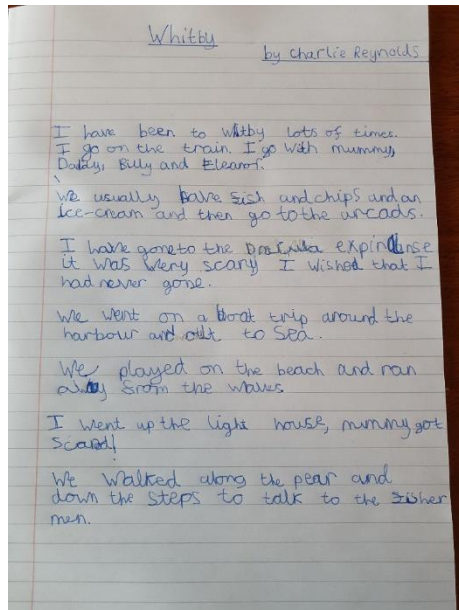 Whitby
by Charlie Reynolds
I have been to Witby lots of times.
I go on the train. I go with mummy,
Daddy, Billy and Eleanor.
We usually have fish and chips and an
ice-cream and then go to the arcads.
I have gone to the Dracula expirinse
it was very scary I wished that I
had never gone.
We went on a boat trip around the
harbour and out to sea.
We played on the beach and ran
away from the waves
I went up the light house, mummy got
scared!
We walked along the pear and
down the steps to talk to the fisher
men.